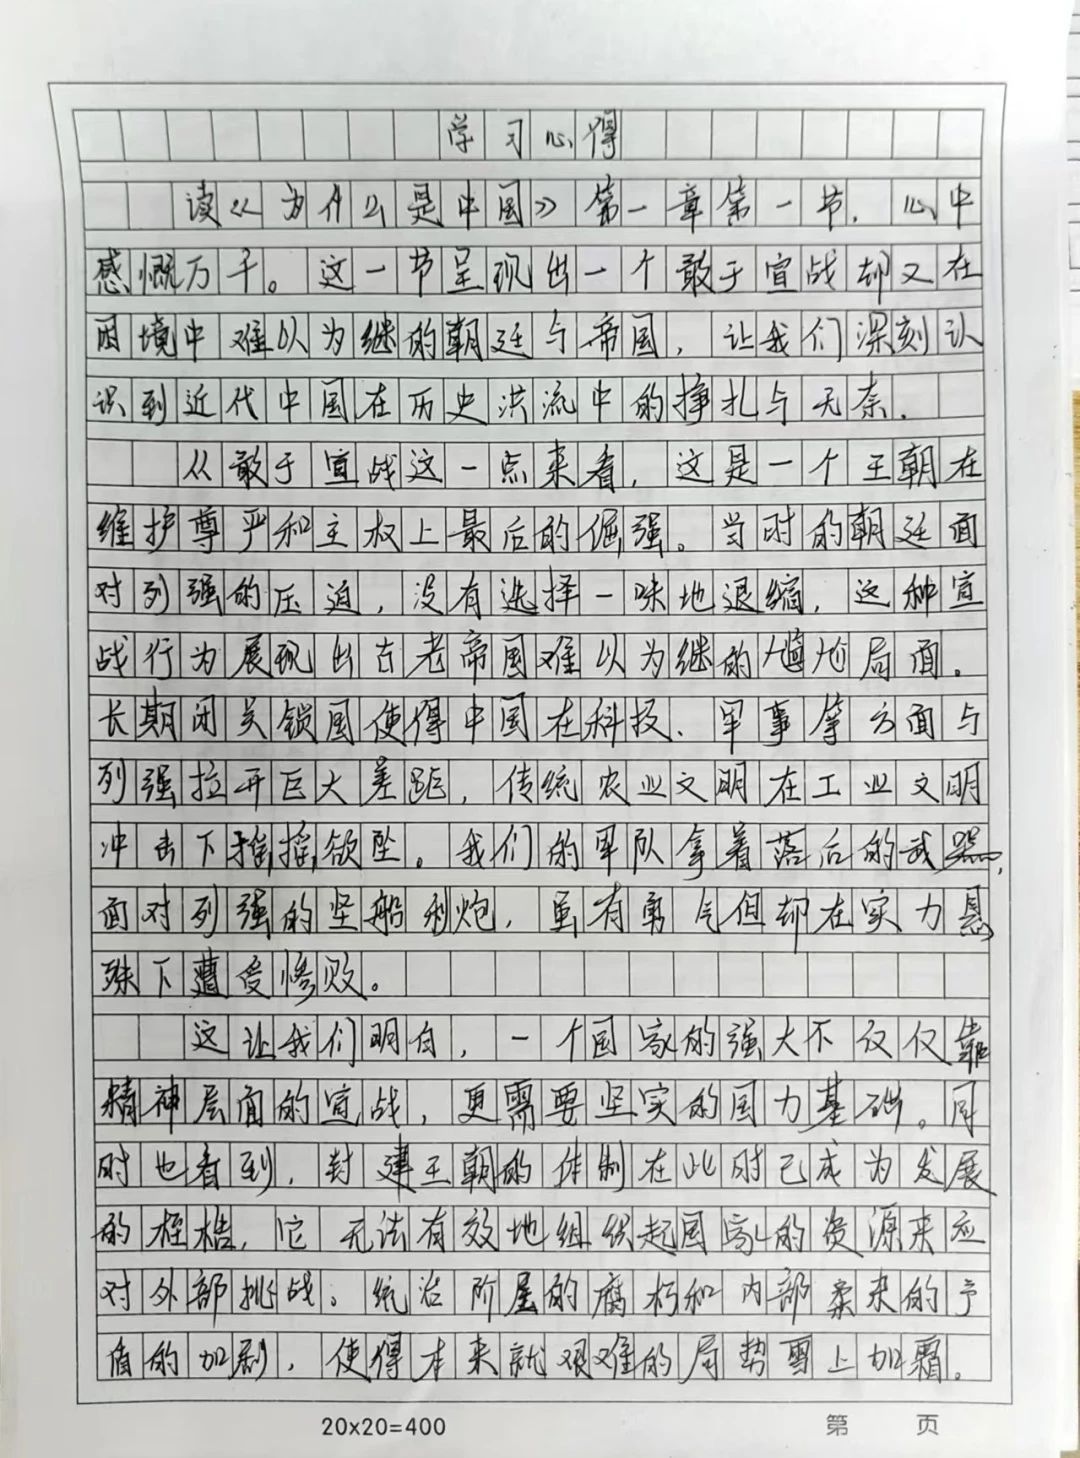 学习心得
读《为什么是中国》第一章第一节，心中
感慨万千。这一节呈现出一个敢于宣战却又在
困境中难以为继的朝廷与帝国，让我们深刻认
识到近代中国在历史洪流中的挣扎与无奈。
从敢于宣战这一点来看，这是一个王朝在
维护尊严和主权上最后的倔强。当时的朝廷面
对列强的压迫，没有选择一味地退缩，这种宣
战行为展现出古老帝国难以为继的尴尬局面。
长期闭关锁国使得中国在科技、军事等方面与
列强拉开巨大差距，传统农业文明在工业文明
冲击下摇摇欲坠。我们的军队拿着落后的武器，
面对列强的坚船利炮，虽有勇气但却在实力悬
殊下遭受惨败。
这让我们明白，一个国家的强大不仅仅靠
精神层面的宣战，更需要坚实的国力基础。同
时也看到，封建王朝的体制在此时已成为发展
的桎梏，它无法有效地组织起国家的资源来应
对外部挑战。统治阶层的腐朽和内部紊杂的予
盾的加剧，使得本来就艰难的局势雪上加霜。
20×20=400
第 页